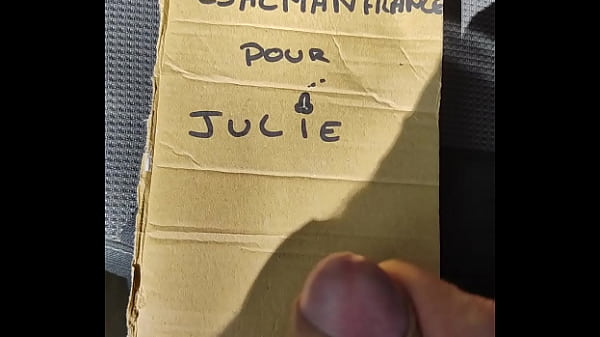 FRANCE
POUR
JULIE